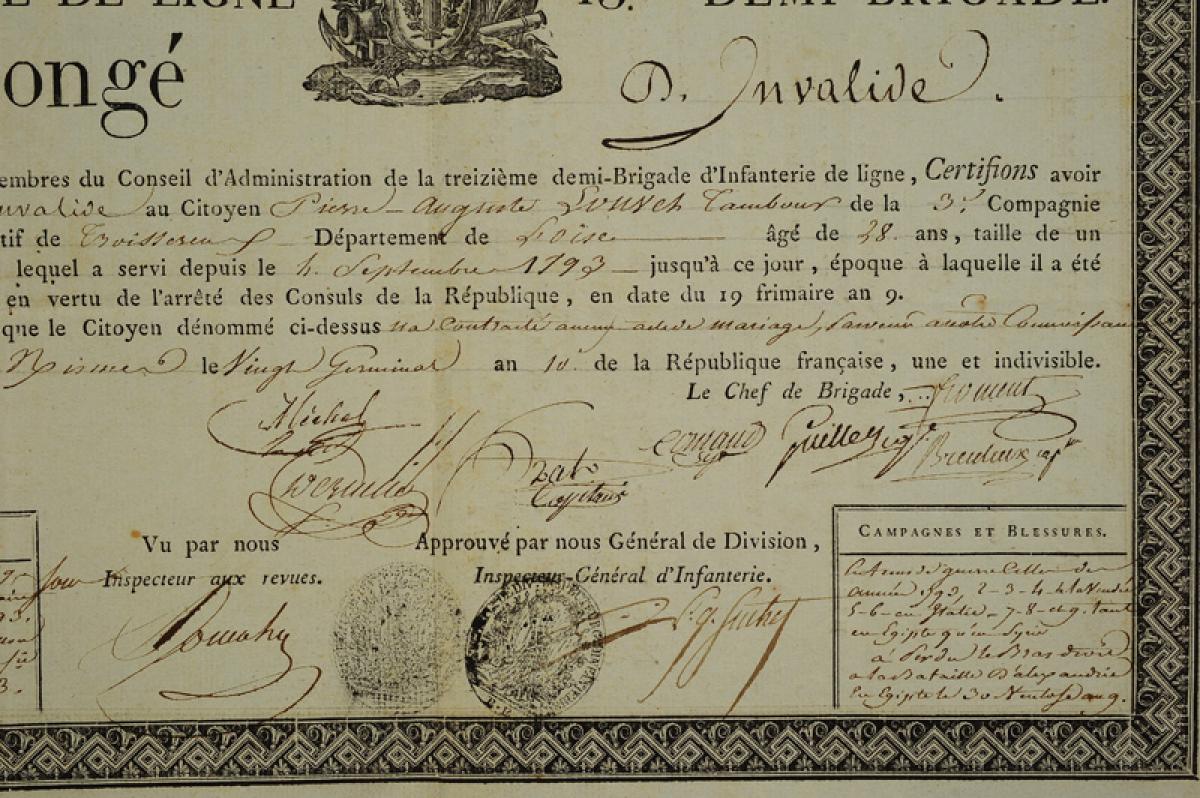 E DE LIGNE 13e. DEMI-BRIGADE.
ongé D'Invalide.
embres du Conseil d'Administration de la treizième demi-Brigade d'Infanterie de ligne, Certifions avoir
nvalide au Citoyen Pierre - Auguste Louvet Tambour de la 3e. Compagnie
tif de Département de Loise âgé de 28. ans, taille de un
lequel a servi depuis le 4. Septembre 1793 jusqu'à ce jour, époque à laquelle il a été
en vertu de l'arrêté des Consuls de la République, en date du 19 frimaire an 9.
que le Citoyen dénommé ci-dessus na Contracté aucun acte de mariage, parvenu anotre Connoissan
Nismes le Vingt Germinal an 10. de la République française, une et indivisible.
Le Chef de Brigade, Froment
Michel
Capitaine
Vu par nous Approuvé par nous Général de Division,
Inspecteur aux revues. Inspecteur-Général d'Infanterie.
CAMPAGNES ET BLESSURES.
de guerre Celles des
année 1793, 2-3-4 à la Vendée
5-6-en Italie, 7-8-et 9, tant
en Egipte qu'en Syrie
à Perdu le Bras droit
a la Bataille D'alexandrie
en Egipte le 30 Ventose an 9.